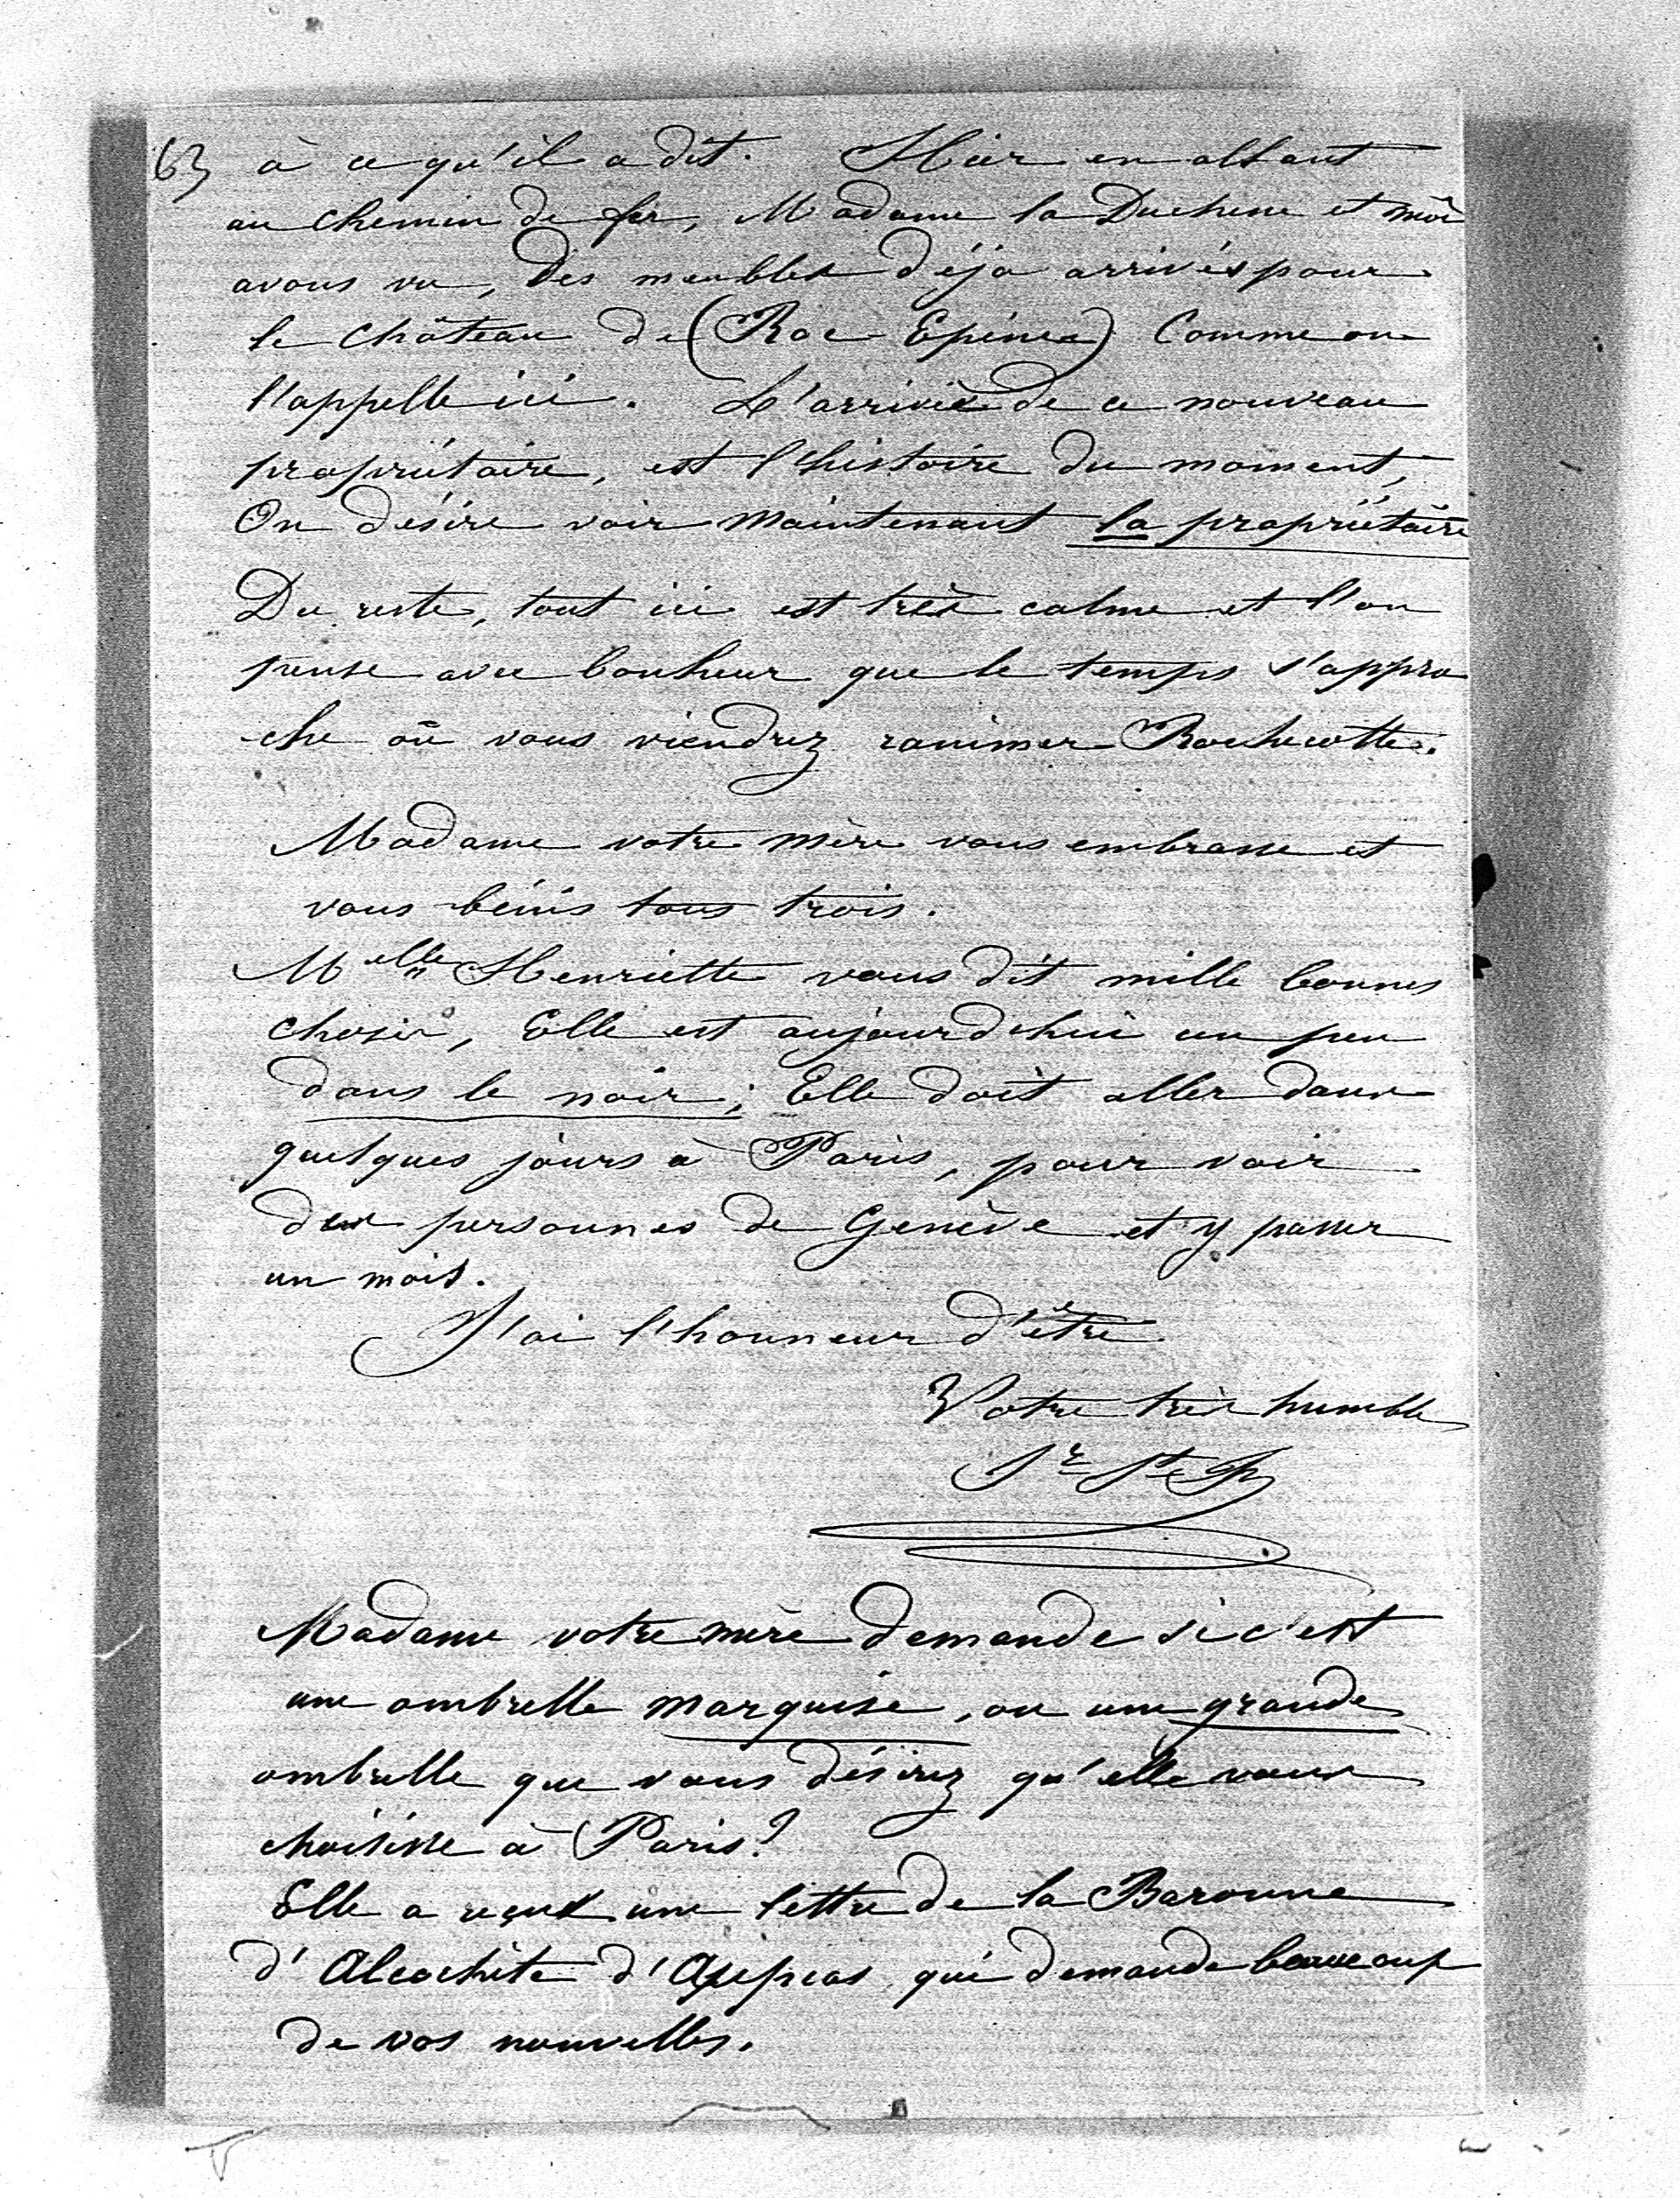 63 à ce qu'il a dit. Hier en allant
au chemin de fer, Madame la Duchesse et moi
avons vu, des meubles déjà arrivés pour
le château de (Roc-Epine) Comme on
l'appelle ici. L'arrivée de ce nouveau
propriétaire, est l'histoire du moment,
On désire voir maintenant la propriétaire
Du reste, tout ici est très calme et l'on
pense avec bonheur que le temps s'appro
-che où vous viendrez ranimer Rochecotte.
Madame votre mère vous embrasse et
vous bénis tous trois.
Melle Henriette vous dit mille bonnes
choses, Elle est aujourd'hui un peu
dans le noir; Elle doit aller dans
quelques jours à Paris, pour voir
des personnes de Genève et y passer
un mois.
J'ai l'honneur d'être
Votre très humble
Sr St P
Madame votre mère demande si c'est
une ombrelle marquise, ou une grande
ombrelle que vous désirez qu'elle vous
choisisse à Paris?
Elle a reçue une lettre de la Baronne
d' d' qui demande beaucoup
de vos nouvelles.